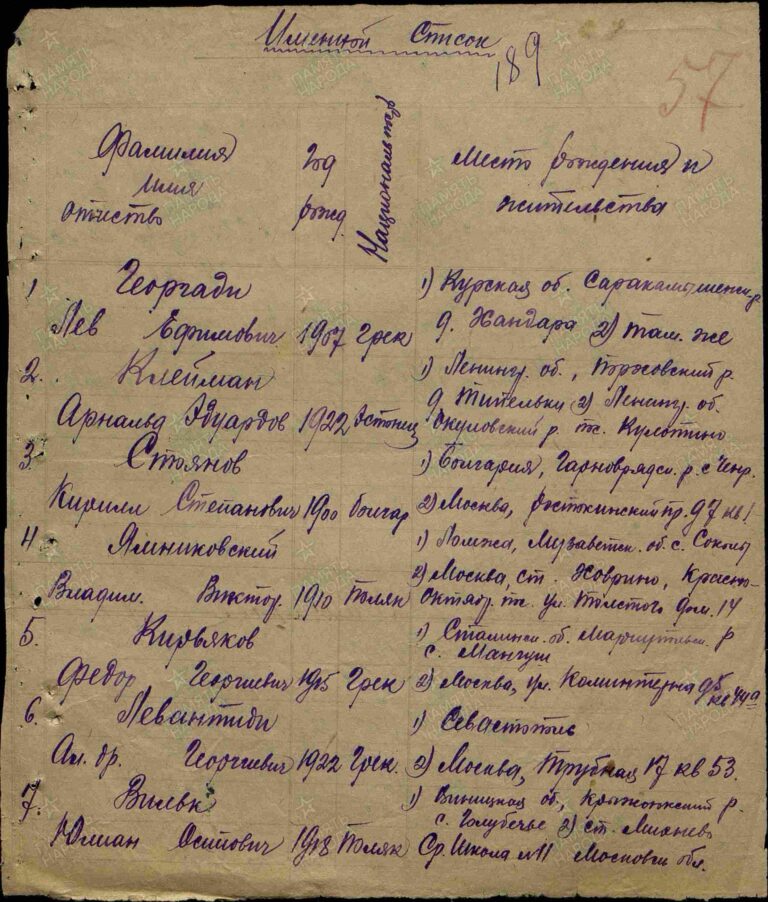 Именной Список
189
57
Фамилия
имя
отчество
Год
рожд.
Национальность
Место рождения и
жительства
1 Георгади
Лев Ефимович 1907 Грек
1) Курская об. р.
д. Хандара 2) там же
2. Клейман
Арнальд Эдуардов 1922 Эстонец
1) Ленингр. об., р.
д. 2) Ленингр. об.
Окуловский р. пс. Кулотино
3 Стоянов
Кирилл Степанович 1900 болгар
1) Болгария, р. с
2) Москва, Ростокинский пр. д 7 кв 1
4 Ямниковский
Владим. Виктор. 1910 Поляк
1) Ломжа, об. с. Соколы
2) Москва, ст. Ховрино, Красно-
Октябр. пс. ул. Толстого дом. 14
5. Кирьяков
Федор Георгиевич 1915 Грек
1) Сталинск. об. р
с. Мангуш
2) Москва, ул. Коминтерна д 5
кв 44а
6. Левантиди
Ал. др. Георгиевич 1922 Грек.
1) Севастополь
2) Москва, Трубная 17 кв 53.
7. Вильк
Юлиан Осипович 1918 Поляк
1) Виницкая об., Крыжопский р.
с. Голубечье 2) ст. Михнево
Ср. Школа №1 Московск обл.
ПАМЯТЬ
НАРОДА